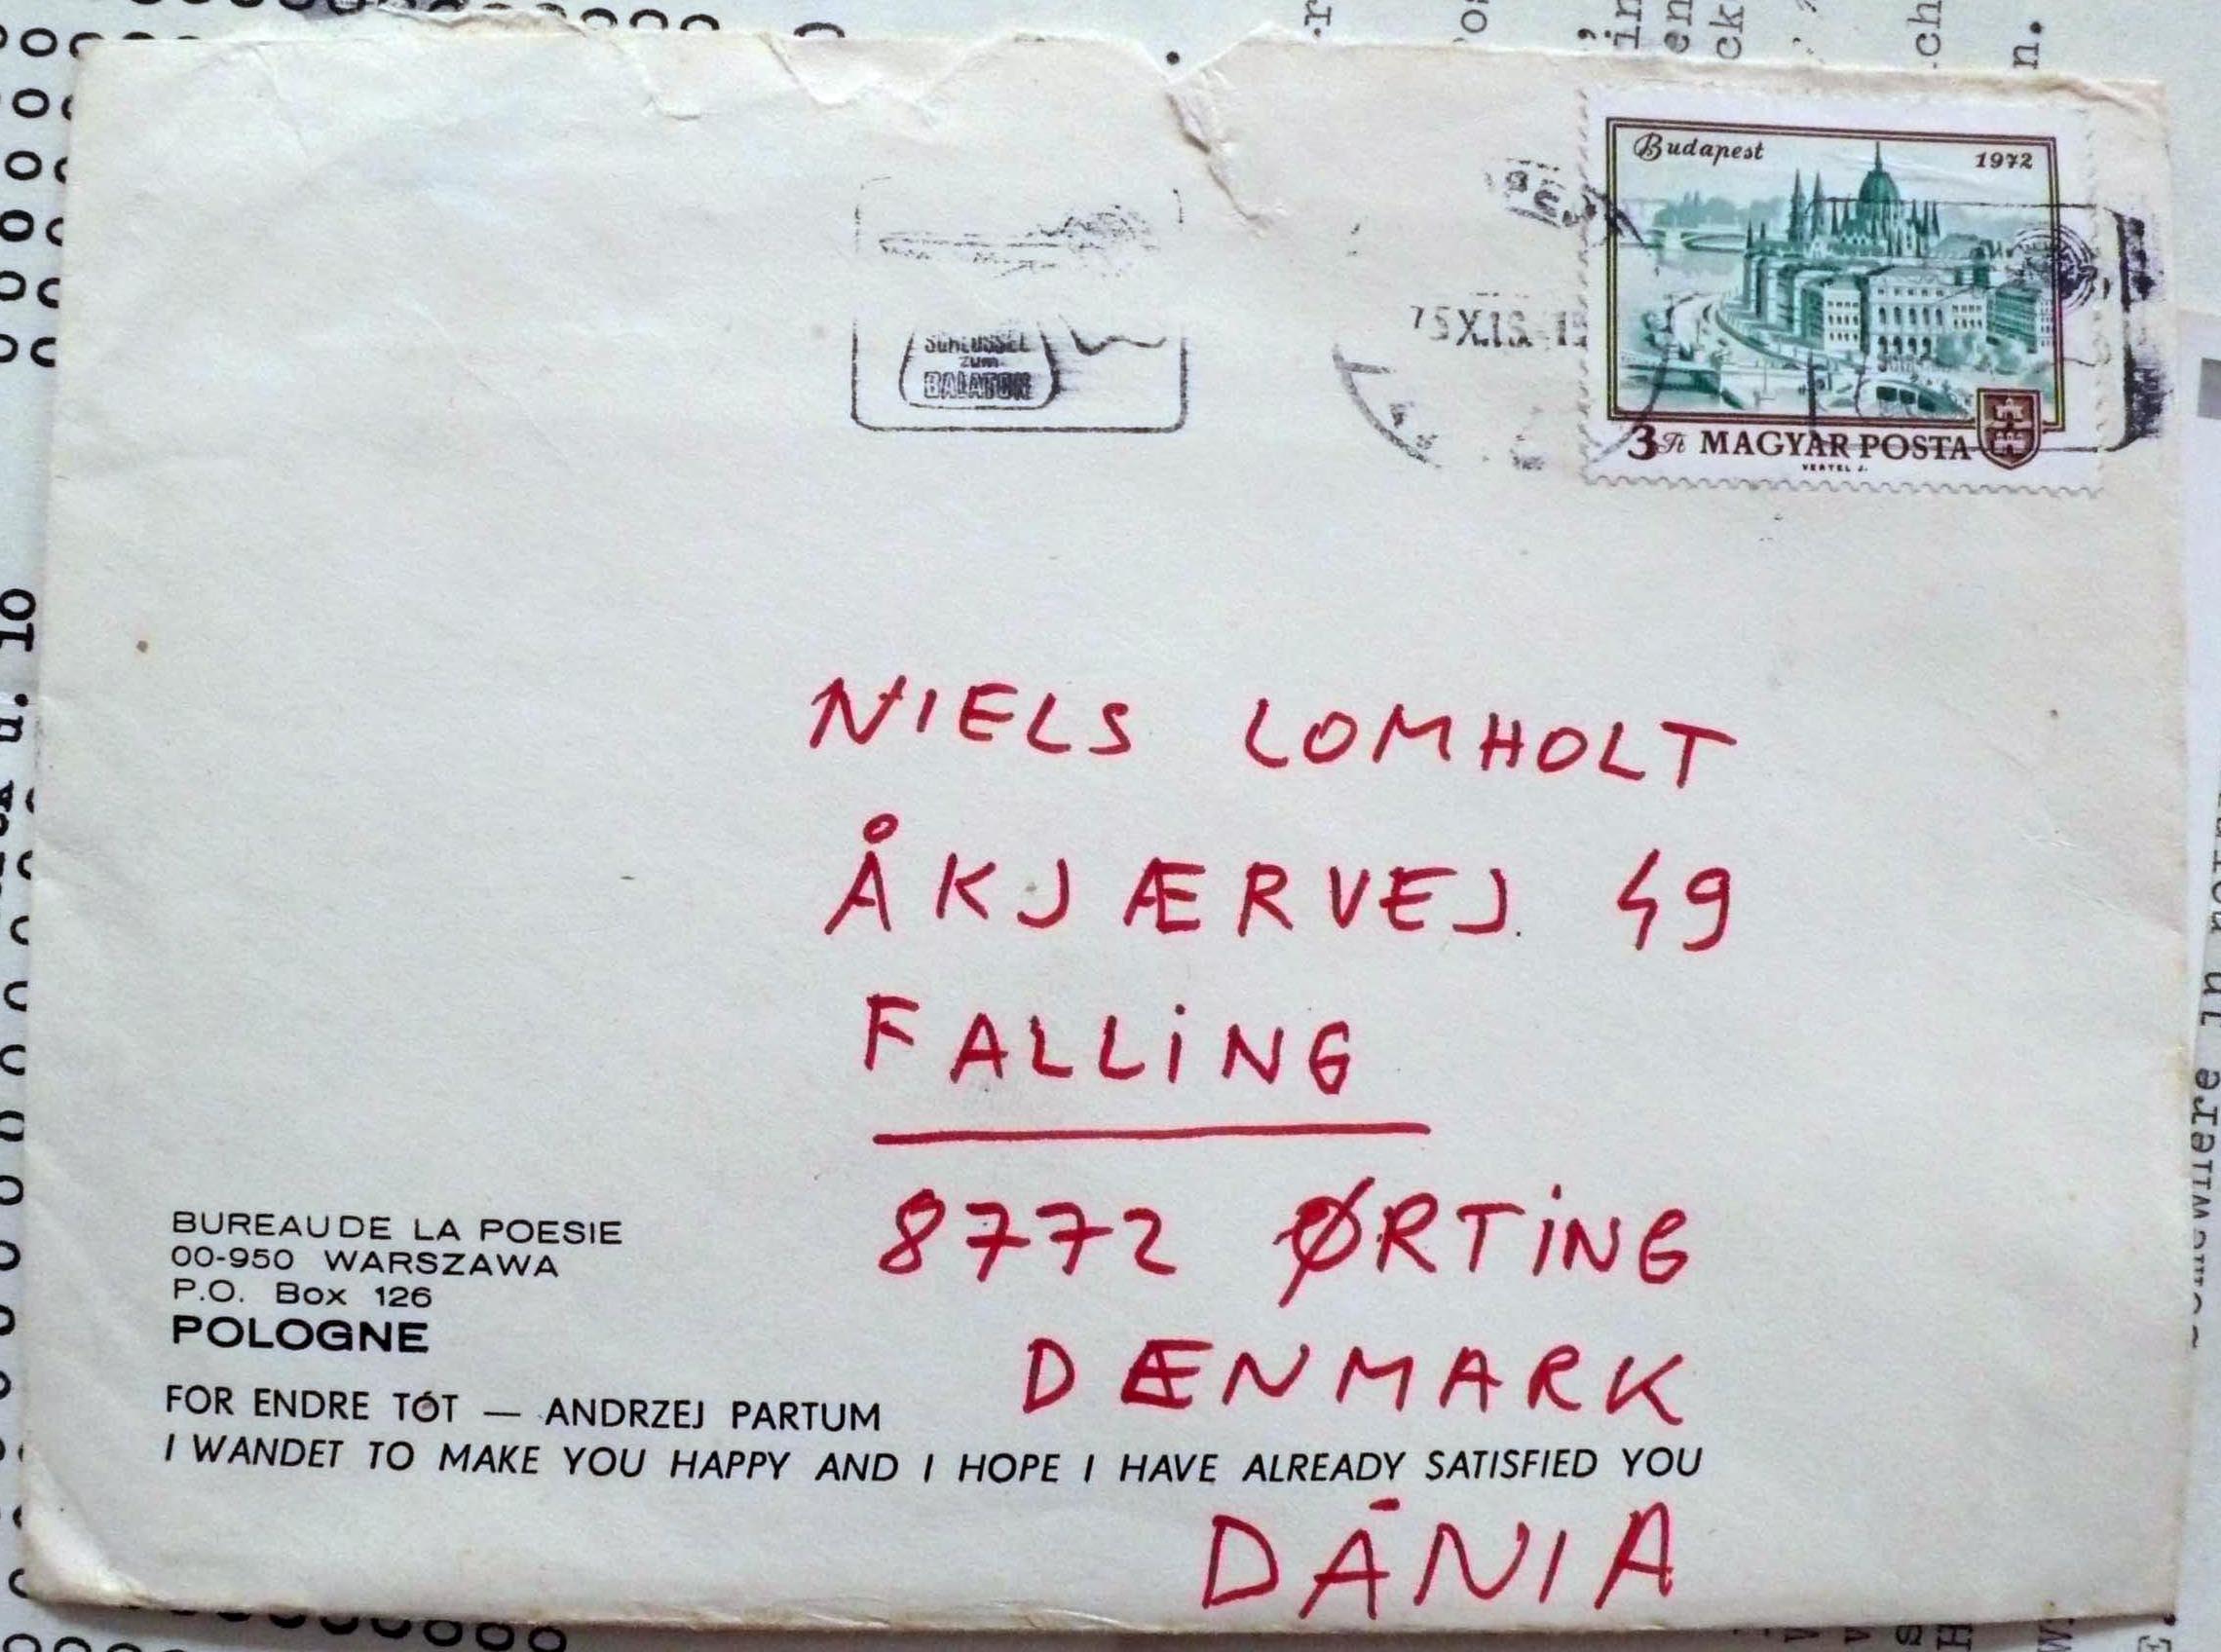 Budapest 1972
3 Ft MAGYAR POSTA
VERTEL J.
SCHLÜSSEL
zum
BALATON
NIELS LOMHOLT
ÅKJÆRVEJ. 49
FALLiNG
8772 ØRTiNG
DÆNMARK
BUREAU DE LA POESIE
00-950 WARSZAWA
P.O. Box 126
POLOGNE
FOR ENDRE TÓT — ANDRZEJ PARTUM
I WANDET TO MAKE YOU HAPPY AND I HOPE I HAVE ALREADY SATISFIED YOU
DÁNIA